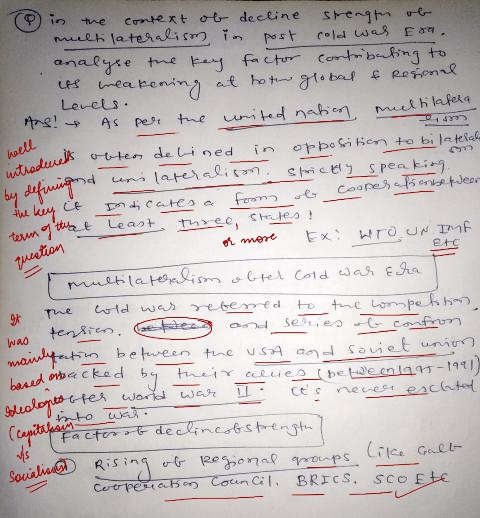 Q in the context of decline strength of
multilateralism in post cold war Era.
analyse the key factor contributing to
its weakening at both global & Regional
Levels.
Ans: → As per the united nation, multilatera
lism
is often defined in opposition to bilateral
ism
and unilateralism. strictly speaking.
it indicates a form of cooperation between
at Least three, states!
or more
Ex: WTO, UN IMF
Etc
well
introduced
by defining
the key
term of the
question
multilateralism after Cold war Era
The cold war referred to the competition,
tension. and series of confron
tation between the USA and Soviet union
backed by their allies (between 1945-1991)
after world war II. it's never esclated
into war.
It
was
mainly
based on
Ideologies
(capitalism
v/s
Socialism)
factor of decline of strength
Rising of Regional groups like Gulf
cooperation Council. BRICS. SCO Etc